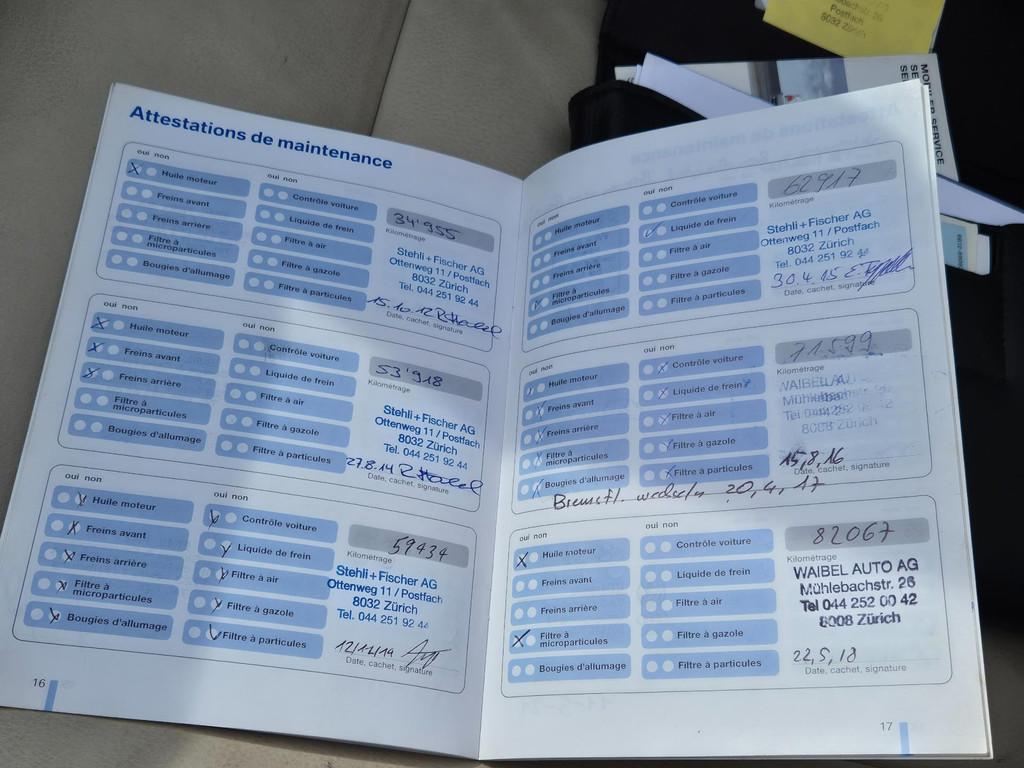 Attestations de maintenance
oui non
Huile moteur
Freins avant
Freins arrière
Filtre à
microparticules
Bougies d'allumage
oui non
Contrôle voiture
Liquide de frein
Filtre à air
Filtre à gazole
Filtre à particules
34'955
Kilométrage
Stehli+Fischer AG
Ottenweg 11 / Postfach
8032 Zürich
Tel. 044 251 92 44
15.10.12
Date, cachet, signature
oui non
Huile moteur
Freins avant
Freins arrière
Filtre à
microparticules
Bougies d'allumage
oui non
Contrôle voiture
Liquide de frein
Filtre à air
Filtre à gazole
Filtre à particules
53'918
Kilométrage
Stehli+Fischer AG
Ottenweg 11 / Postfach
8032 Zürich
Tel. 044 251 92 44
27.8.14
Date, cachet, signature
oui non
Huile moteur
Freins avant
Freins arrière
Filtre à
microparticules
Bougies d'allumage
oui non
Contrôle voiture
Liquide de frein
Filtre à air
Filtre à gazole
Filtre à particules
59434
Kilométrage
Stehli+Fischer AG
Ottenweg 11 / Postfach
8032 Zürich
Tel. 044 251 92 44
Date, cachet, signature
16
oui non
Huile moteur
Freins avant
Freins arrière
Filtre à
microparticules
Bougies d'allumage
oui non
Contrôle voiture
Liquide de frein
Filtre à air
Filtre à gazole
Filtre à particules
62917
Kilométrage
Stehli+Fischer AG
Ottenweg 11 / Postfach
8032 Zürich
Tel. 044 251 92 44
30.4.15
Date, cachet, signature
oui non
Huile moteur
Freins avant
Freins arrière
Filtre à
microparticules
Bougies d'allumage
oui non
Contrôle voiture
Liquide de frein
Filtre à air
Filtre à gazole
Filtre à particules
71599
Kilométrage
WAIBEL AU
Mühlebachstr.
Tel 044 252 42
8008 Zürich
15,8,16
Date, cachet, signature
Bremsfl. wechseln 20,4,17
oui non
Huile moteur
Freins avant
Freins arrière
Filtre à
microparticules
Bougies d'allumage
oui non
Contrôle voiture
Liquide de frein
Filtre à air
Filtre à gazole
Filtre à particules
82067
Kilométrage
WAIBEL AUTO AG
Mühlebachstr. 26
Tel 044 252 00 42
8008 Zürich
22,5,18
Date, cachet, signature
17
Postfach
8032 Zürich
MOBILER SERVICE